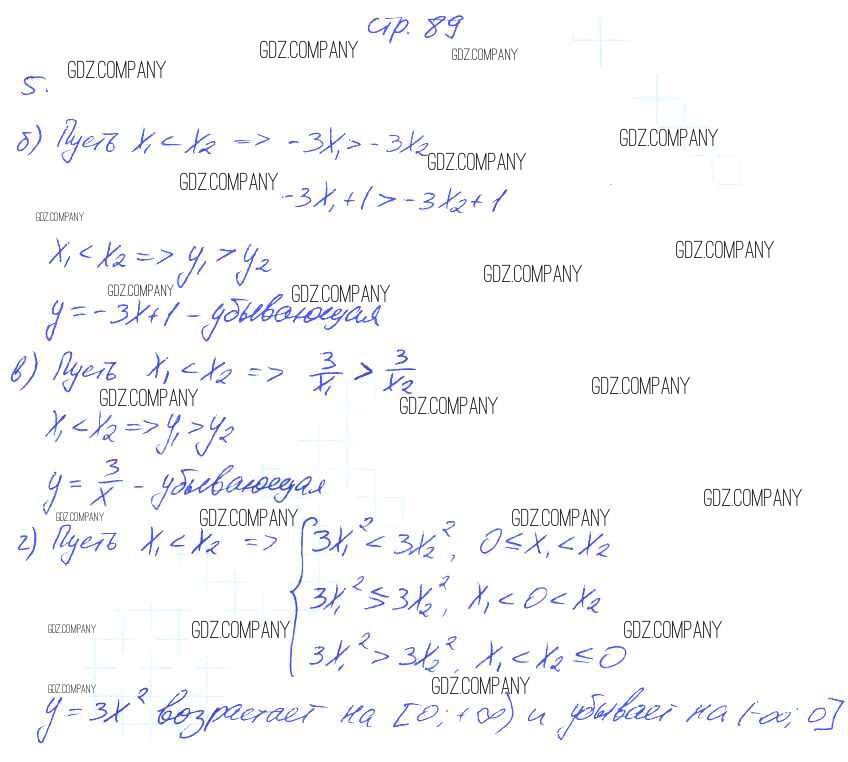 стр. 89
GDZ.COMPANY GDZ.COMPANY
GDZ.COMPANY
5.
б) Пусть x₁ < x₂ => -3x₁ > -3x₂
GDZ.COMPANY
GDZ.COMPANY
GDZ.COMPANY
-3x₁+1 > -3x₂+1
GDZ.COMPANY
x₁ < x₂ => y₁ > y₂
GDZ.COMPANY
GDZ.COMPANY
GDZ.COMPANY GDZ.COMPANY
y = -3x+1 - убывающая
в) Пусть x₁ < x₂ => 3/x₁ > 3/x₂
GDZ.COMPANY
GDZ.COMPANY GDZ.COMPANY
x₁ < x₂ => y₁ > y₂
y = 3/x - убывающая
GDZ.COMPANY
GDZ.COMPANY GDZ.COMPANY GDZ.COMPANY
г) Пусть x₁ < x₂ => { 3x₁² < 3x₂², 0 ≤ x₁ < x₂
3x₁² ≤ 3x₂², x₁ < 0 < x₂
GDZ.COMPANY GDZ.COMPANY GDZ.COMPANY
3x₁² > 3x₂², x₁ < x₂ ≤ 0
GDZ.COMPANY GDZ.COMPANY
y = 3x² возрастает на [0; +∞) и убывает на (-∞; 0]